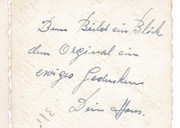 Dem Bild ein Blick
dem Orginal ein
ewiges Gedenken
Dein Hans.